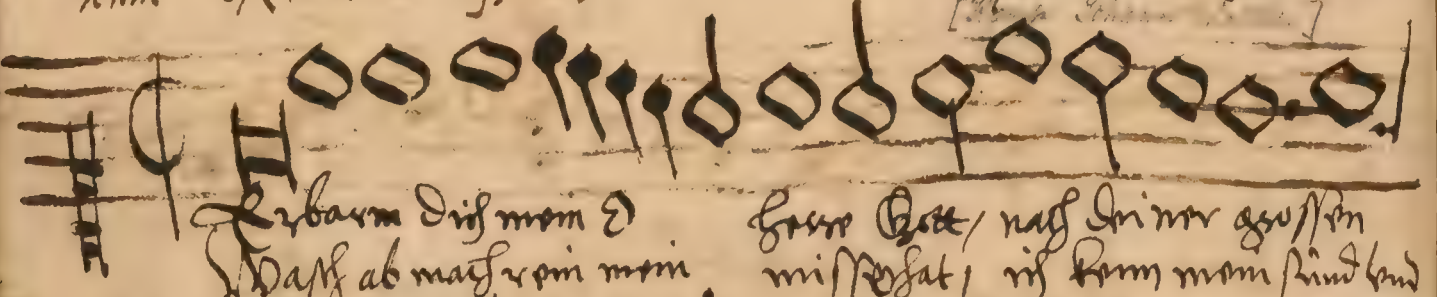 Erbarm dich mein O herre Gott, nach deiner grossen
Wasch ab mach rein mein missethat, ich kenn mein sünd vnd